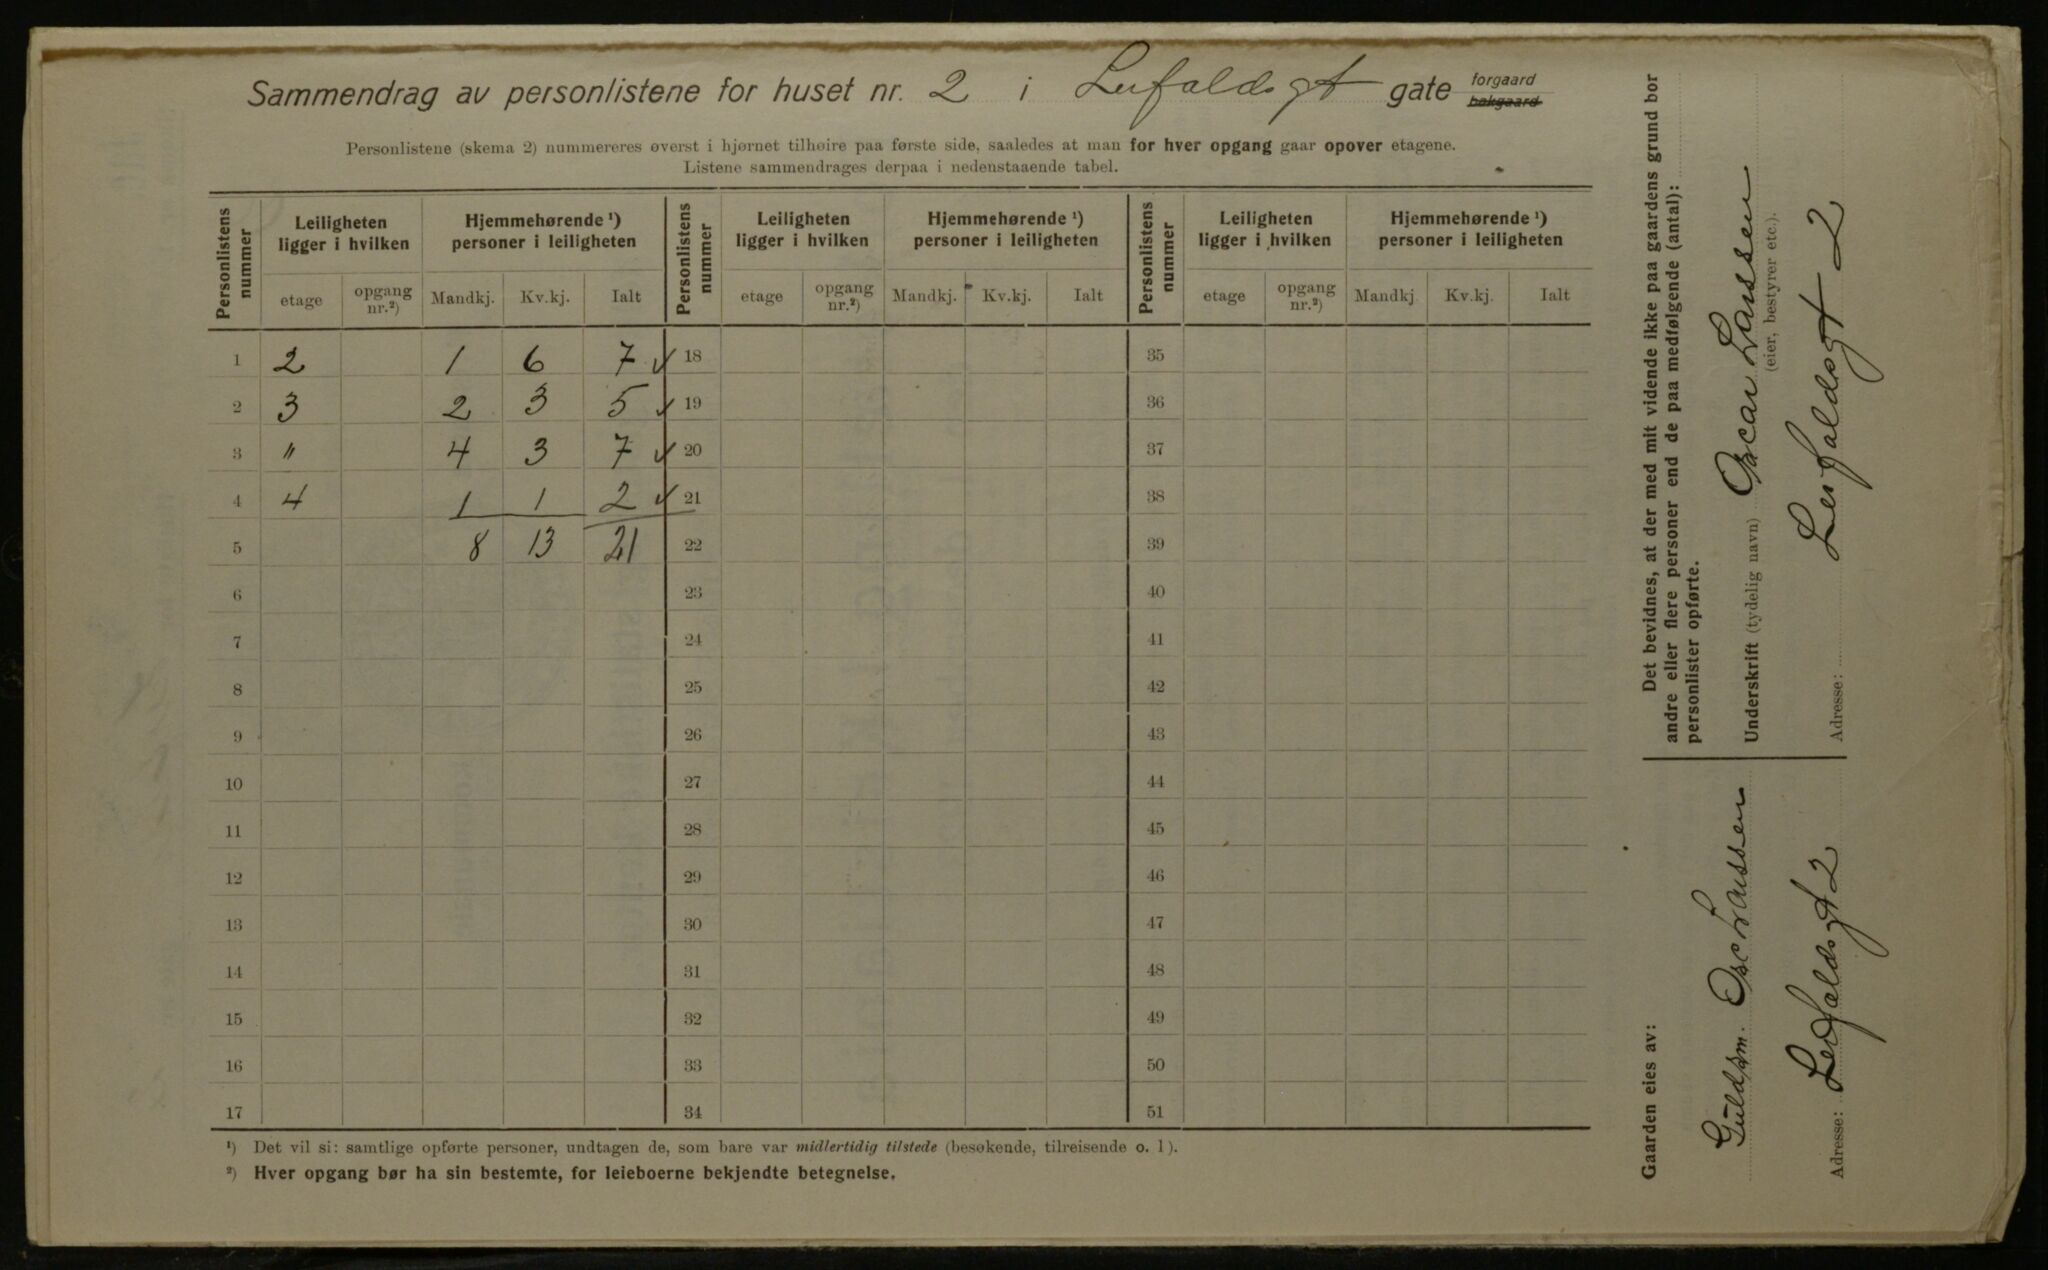 Sammendrag av personlistene for huset nr. 2 i Lerfaldsgt gate forgaard bakgaard
Personlistene (skema 2) nummereres øverst i hjørnet tilhøire paa første side, saaledes at man for hver opgang gaar opover etagene.
Listene sammendrages derpaa i nedenstaaende tabel.
Personlistens nummer Leiligheten ligger i hvilken Hjemmehørende ¹) personer i leiligheten Personlistens nummer Leiligheten ligger i hvilken Hjemmehørende ¹) personer i leiligheten Personlistens nummer Leiligheten ligger i hvilken Hjemmehørende ¹) personer i leiligheten
etage opgang nr.²) Mandkj. Kv.kj. Ialt etage opgang nr.²) Mandkj. Kv.kj. Ialt etage opgang nr.²) Mandkj Kv.kj. Ialt
1 2 1 6 7 ✓ 18 35
2 3 2 3 5 ✓ 19 36
3 " 4 3 7 ✓ 20 37
4 4 1 1 2 ✓ 21 38
5 8 13 21 22 39
6 23 40
7 24 41
8 25 42
9 26 43
10 27 44
11 28 45
12 29 46
13 30 47
14 31 48
15 32 49
16 33 50
17 34 51
¹) Det vil si: samtlige opførte personer, undtagen de, som bare var midlertidig tilstede (besøkende, tilreisende o. l).
²) Hver opgang bør ha sin bestemte, for leieboerne bekjendte betegnelse.
Det bevidnes, at der med mit vidende ikke paa gaardens grund bor
andre eller flere personer end de paa medfølgende (antal):
personlister opførte.
Underskrift (tydelig navn) Oscar Larssen
(eier, bestyrer etc.).
Adresse: Lerfaldsgt 2
Gaarden eies av:
Guldsm. Osc Larssen
Adresse: Lerfaldsgt 2